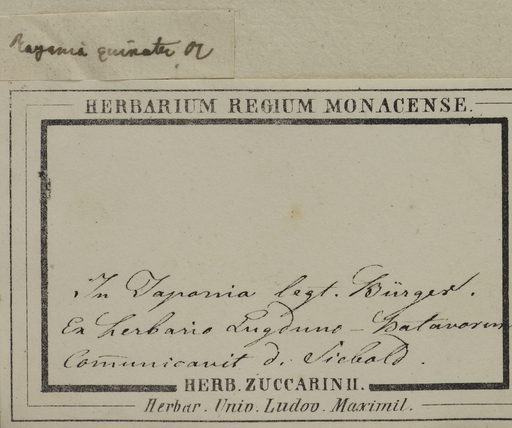 Rajania quinata
HERBARIUM REGIUM MONACENSE.
In Japonia legt. Bürger.
Ex herbario Lugduno-Batavorum
Communicavit d. Siebold.
HERB. ZUCCARINII.
Herbar. Univ. Ludov. Maximil.